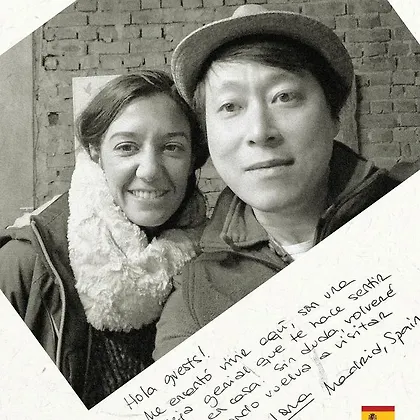 Hola guests!
Me encantó vivir aquí, son una
genial que te hace sentir
en casa! Sin duda volveré
cuando vuelva a visitar
Madrid, Spain